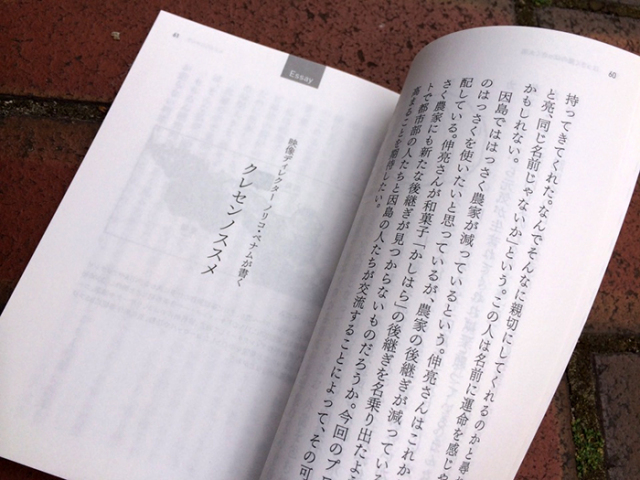 60
持ってきてくれた。なんでそんなに親切にしてくれるのかと尋
と亮、同じ名前じゃないか」という。この人は名前に運命を感じや
かもしれない。
因島でははっさく農家が減っているという。伸亮さんはこれか
のはっさくを使いたいと思っているが、農家の後継ぎが減っている
配している。伸亮さんが和菓子「かしはら」の後継ぎを名乗り出たよ
さく農家にも新たな後継ぎが見つからないものだろうか。今回のプロ
トで都市部の人たちと因島の人たちが交流することによって、その可
高まることを期待したい。
61
Essay
映像ディレクター ノリコ・ベナムが書く
クレセンノススメ